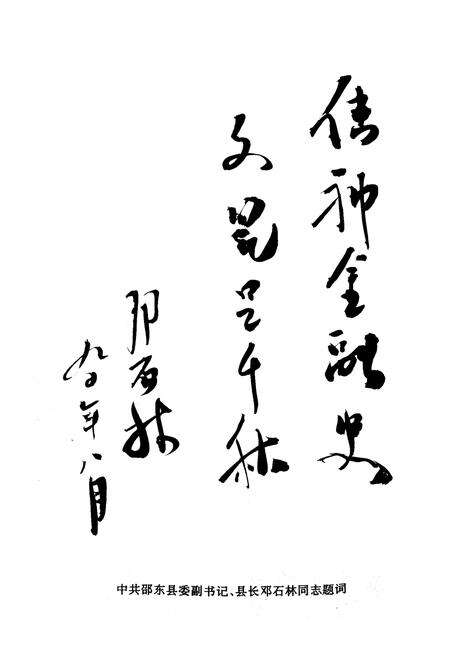 传神金融史
文千秋
邓石林
九〇年八月
中共邵东县委副书记、县长邓石林同志题词